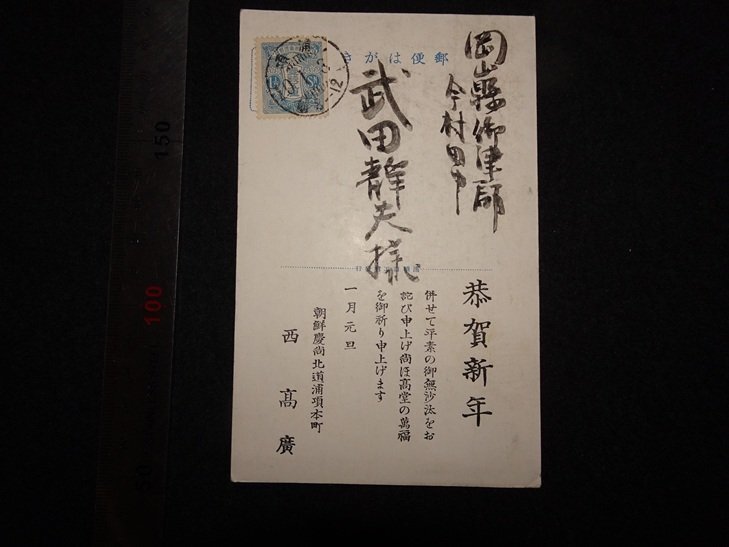 郵便はがき
岡山縣御津郡
今村田中
武田静夫様
恭賀新年
併せて平素の御無沙汰をお
詫び申上げ尚ほ高堂の萬福
を御祈り申上げます
一月元旦
朝鮮慶尚北道浦項本町
西高廣
150
100
50